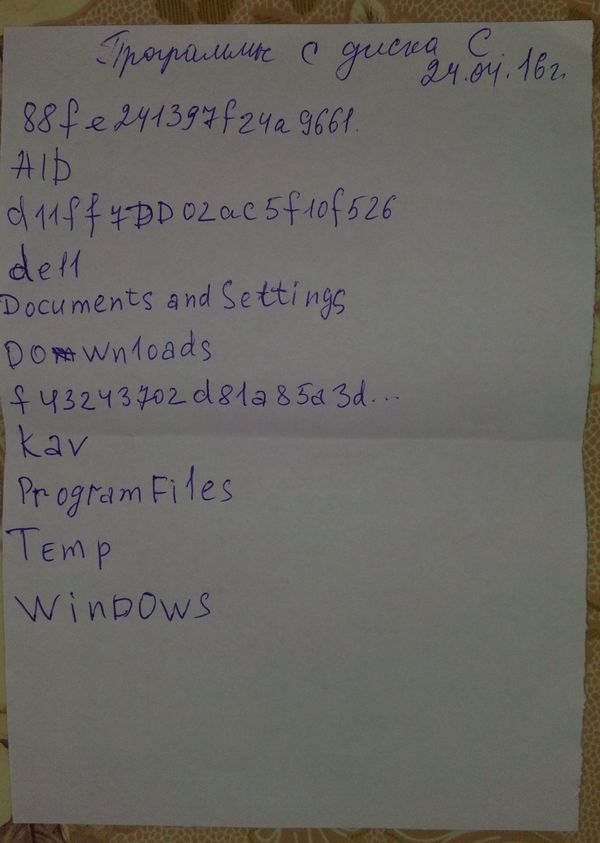 Программы с диска С
24.04.16г.
88fe241397f24a9661.
AID
d11ff7DD02ac5f10f526
dell
Documents and Settings
Downloads
f43243702d81a85a3d...
kav
Program Files
Temp
WinDOWS